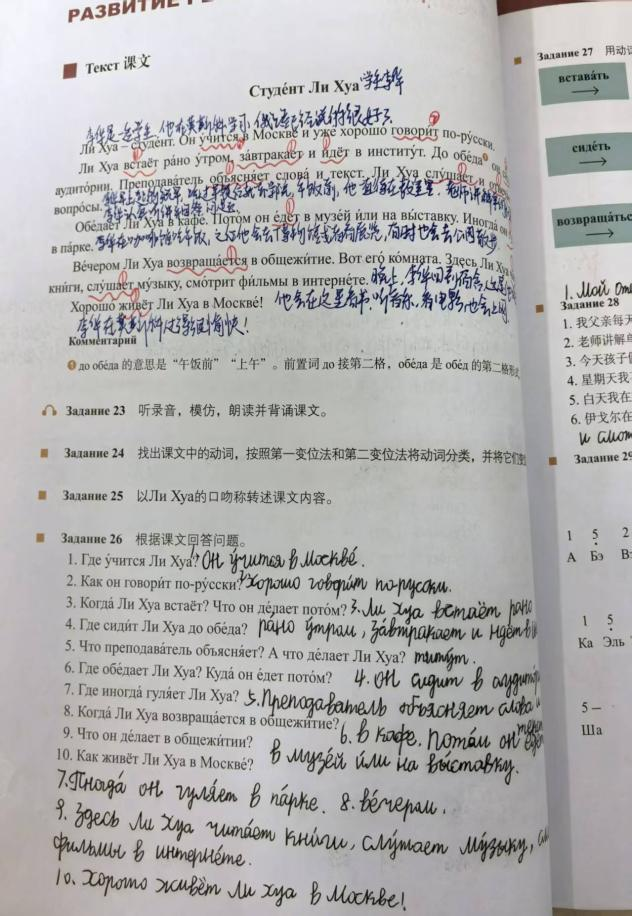 РАЗВИТИЕ РЕ
Текст 课文
Студе́нт Ли Хуа 学生李华
李华是一名学生，他在莫斯科学习，俄语已经说的很好了
Ли Хуа – студе́нт. Он у́чится в Москве́ и уже́ хорошо́ говори́т по-ру́сски.
Ли Хуа встаёт ра́но у́тром, за́втракает и идёт в институ́т. До обе́да❶ он
аудито́рии. Преподава́тель объясня́ет слова́ и текст. Ли Хуа слу́шает и
вопро́сы.
Обе́дает Ли Хуа в кафе́. Пото́м он е́дет в музе́й и́ли на вы́ставку. Иногда́ он
в па́рке.
Ве́чером Ли Хуа возвраща́ется в общежи́тие. Вот его́ ко́мната. Здесь Ли Хуа
кни́ги, слу́шает му́зыку, смо́трит фи́льмы в интерне́те. 晚上，李华回到宿舍
Хорошо́ живёт Ли Хуа в Москве́! 他会在这里看书，听音乐，看电影，也会上网
李华在莫斯科过得很愉快！
Коммента́рий
❶ до обе́да 的意思是“午饭前”“上午”。前置词 до 接第二格，обе́да 是 обе́д 的第二格形式
Задание 23 听录音，模仿，朗读并背诵课文。
Задание 24 找出课文中的动词，按照第一变位法和第二变位法将动词分类，并将它们
Задание 25 以Ли Хуа的口吻称转述课文内容。
Задание 26 根据课文回答问题。
1. Где у́чится Ли Хуа? 1. Он у́чится в Москве́.
2. Как он говори́т по-ру́сски? 2. Хорошо говори́т по-русски.
3. Когда́ Ли Хуа встаёт? Что он де́лает пото́м? 3. Ли Хуа встаёт рано
4. Где сиди́т Ли Хуа до обе́да? ра́но у́тром, за́втракает и идёт в
5. Что преподава́тель объясня́ет? А что де́лает Ли Хуа?
6. Где обе́дает Ли Хуа? Куда́ он е́дет пото́м? 4. он сидит в аудито́р
7. Где иногда́ гуля́ет Ли Хуа? 5. Преподаватель объясняет слова и
8. Когда́ Ли Хуа возвраща́ется в общежи́тие? 6. в кафе. Потом он едет
9. Что он де́лает в общежи́тии?
10. Как живёт Ли Хуа в Москве́? в музе́й и́ли на вы́ставку.
7. Иногда́ он гуля́ет в па́рке. 8. ве́чером.
9. Здесь Ли Хуа чита́ет кни́ги, слу́шает му́зыку,
фильмы в интерне́те.
10. Хорошо живёт Ли Хуа в Москве!
Задание 27 用动词
встава́ть
сиде́ть
возвраща́ться
1. Мой оте
Задание 28
1. 我父亲每天
2. 老师讲解单
3. 今天孩子们
4. 星期天我
5. 白天我在
6. 伊戈尔在
и смот
Задание 29
1 5 2
А Бэ Вэ
1 5
Ка Эль
5 –
Ша